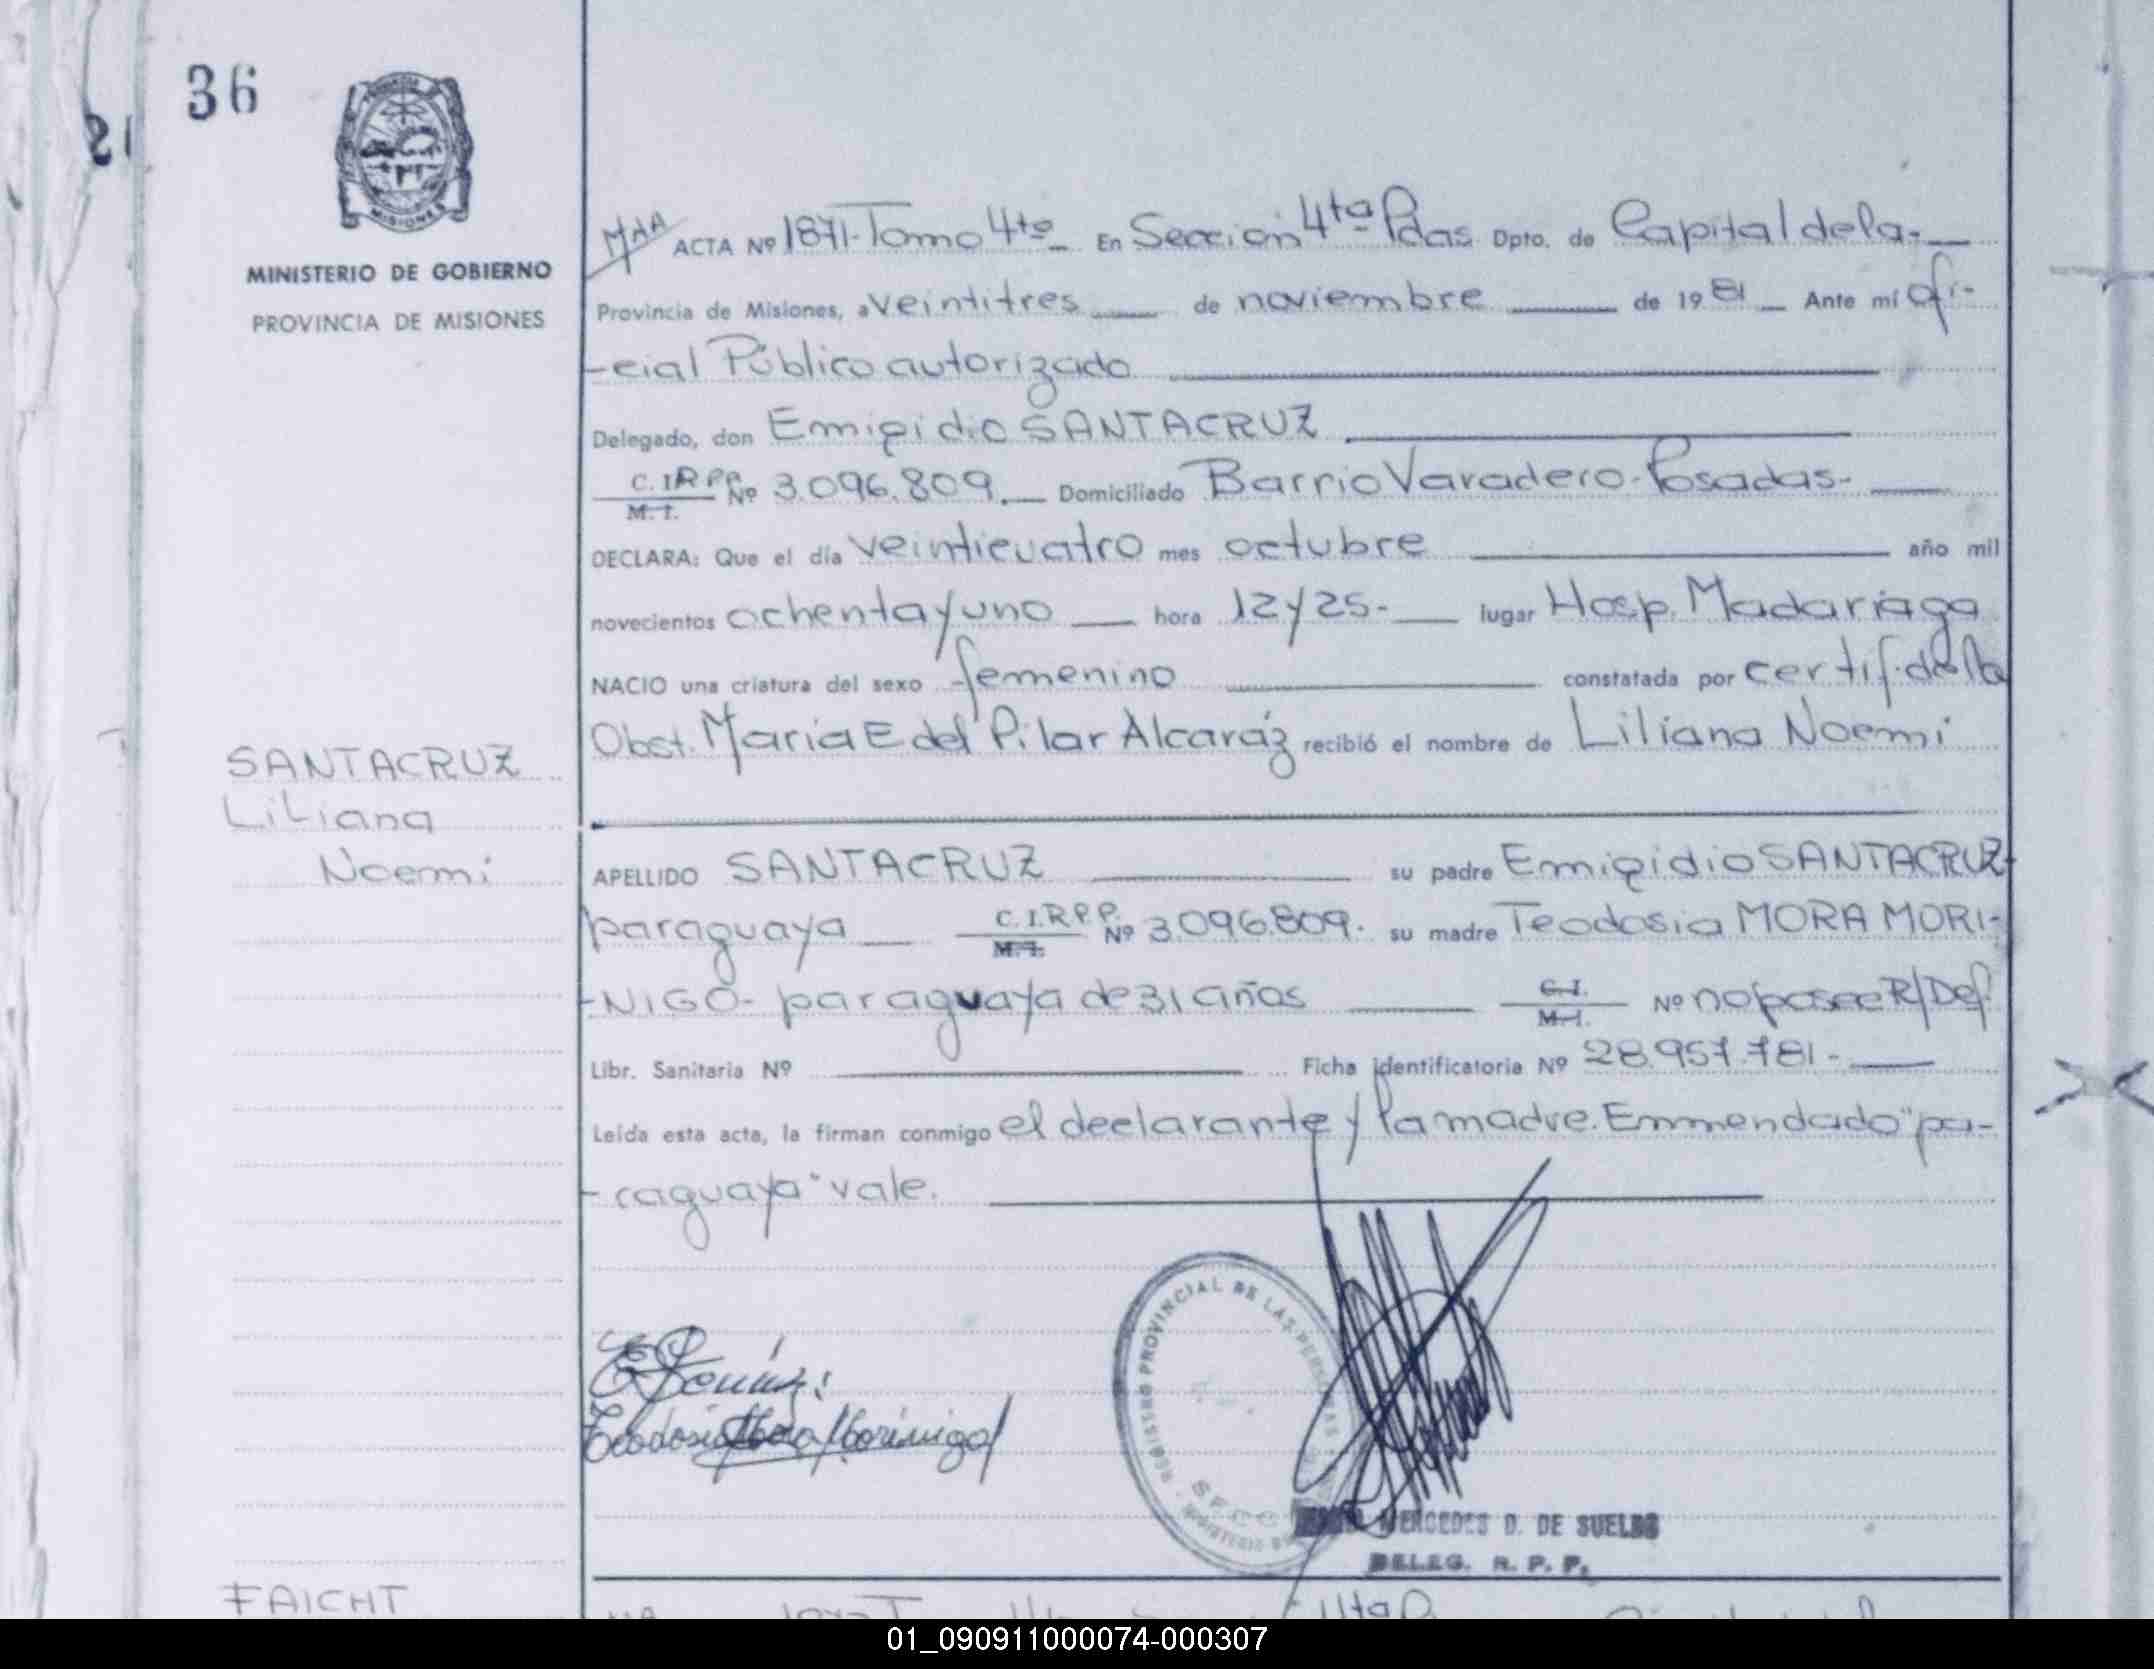 36
21
MISIONES
MINISTERIO DE GOBIERNO
PROVINCIA DE MISIONES
MAA ACTA Nº 1871-Tomo 4to_ En Sección 4ta Pdas Dpto. de Capital de la-
Provincia de Misiones, a veintitres de noviembre de 1981 Ante mí ofi-
-cial Público autorizado
Delegado, don Emigidio SANTACRUZ
C.I.R.P.P. M.I. Nº 3.096.809. Domiciliado Barrio Varadero-Posadas-
DECLARA: Que el día veinticuatro mes octubre año mil
novecientos ochenta y uno hora 12 y 25- lugar Hosp. Madariaga
NACIO una criatura del sexo femenino constatada por certif. de la
Obst. María E del Pilar Alcaráz recibió el nombre de Liliana Noemi
SANTACRUZ
Liliana
Noemi
APELLIDO SANTACRUZ su padre Emigidio SANTACRUZ-
paraguaya C.I.R.P.P. M.I. Nº 3.096.809. su madre Teodosia MORA MORI-
-NIGO- paraguaya de 31 años C.I. M.I. Nº no posee R/Def.
Libr. Sanitaria Nº Ficha identificatoria Nº 28.957.781-
Leída esta acta, la firman conmigo el declarante y la madre. Enmendado "pa-
-raguaya" vale.
Teodosia Mora Morinigo
REGISTRO PROVINCIAL DE LAS PERSONAS
MERCEDES D. DE SUELDO
DELEG. R. P. P.
FAICHT
01_090911000074-000307